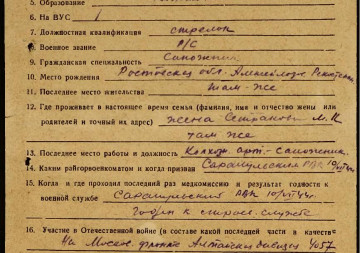 5. Образование
6. На ВУС
7. Должностная квалификация стрелок
8. Военное звание р/с
9. Гражданская специальность Сапожник
10. Место рождения Ростовская обл.
11. Последнее место жительства там-же
12. Где проживает в настоящее время семья (фамилия, имя и отчество жены или
родителей и точный их адрес) жена М.К.
там же
13. Последнее место работы и должность арт.- сапожник
14. Каким райгорвоенкоматом и когда призван Сарапульский РВК
15. Когда и где проходил последний раз медкомиссию и результат годности к
военной службе Сарапульский РВК
Годен к строев. службе
16. Участие в Отечественной войне (в составе какой последней части и качестве
На фронте 4057